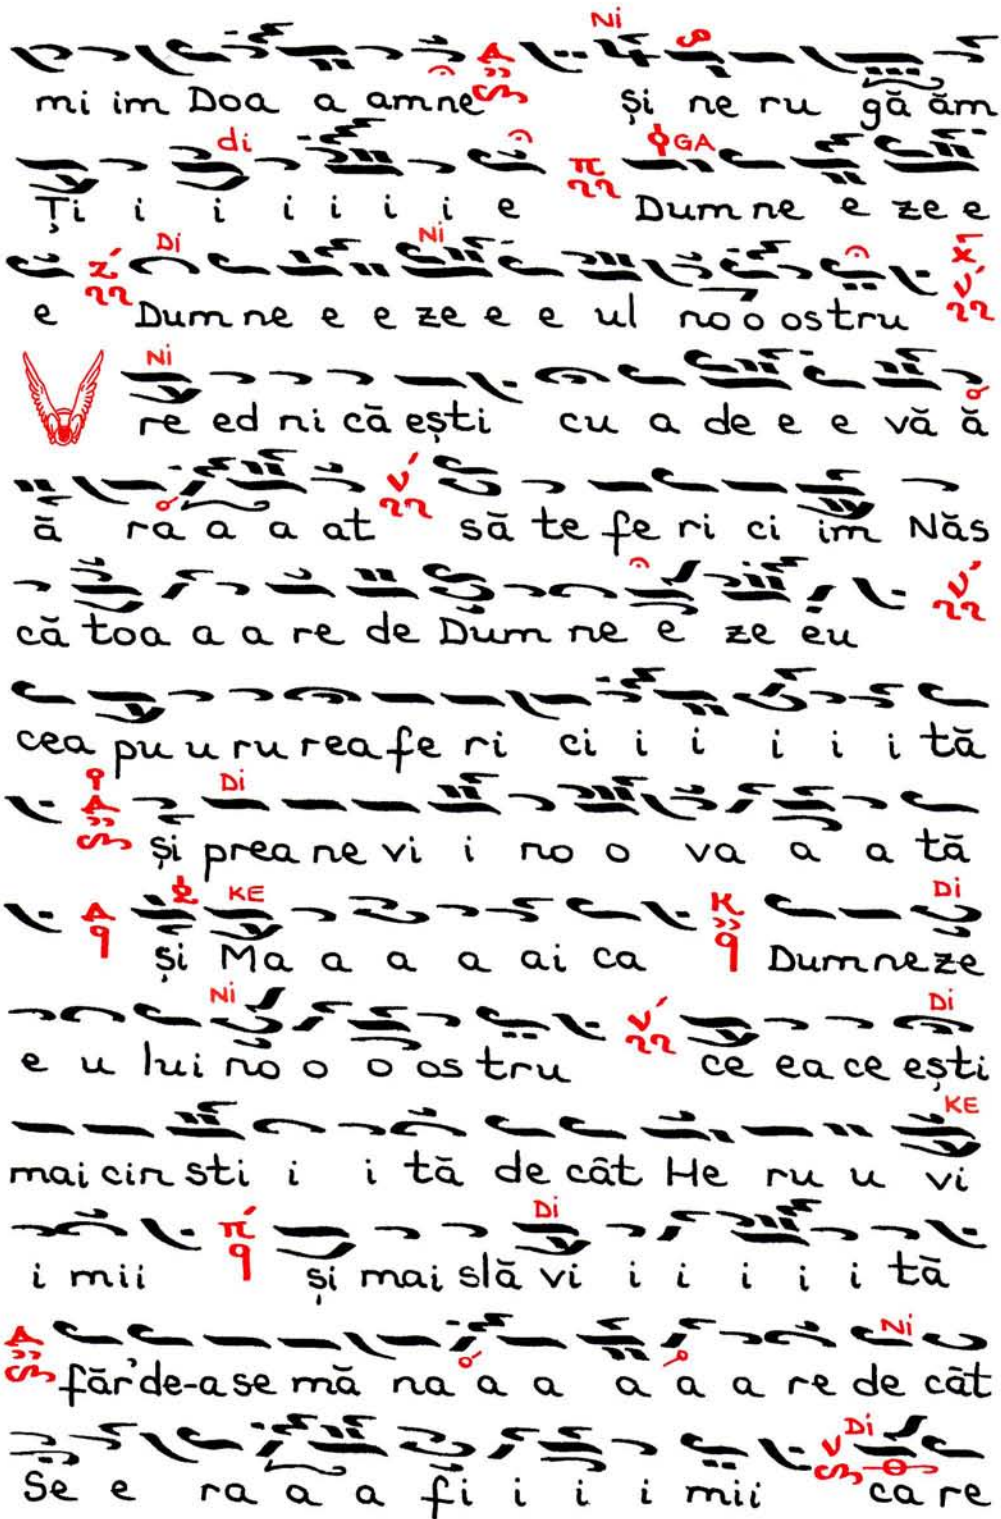 Ni
mi im Doa a amne și ne ru gă ăm
di GA
Ți i i i i i i e Dum ne e ze e
Di Ni
e Dum ne e e ze e e ul no o ostru
Ni
re ed ni că ești cu a de e e vă ă
ă ra a a at să te fe ri ci im Năs
că toa a a re de Dum ne e ze eu
cea pu u ru rea fe ri ci i i i i i tă
Di
și prea ne vi i no o va a a tă
KE Di
și Ma a a a ai ca Dum ne ze
Ni Di
e u lui no o o os tru ce ea ce ești
KE
mai cin sti i i tă de cât He ru u vi
Di
i mii și mai slă vi i i i i i tă
Ni
făr'de-a se mă na a a a a a re de cât
Di
Se e ra a a fi i i i mii ca re